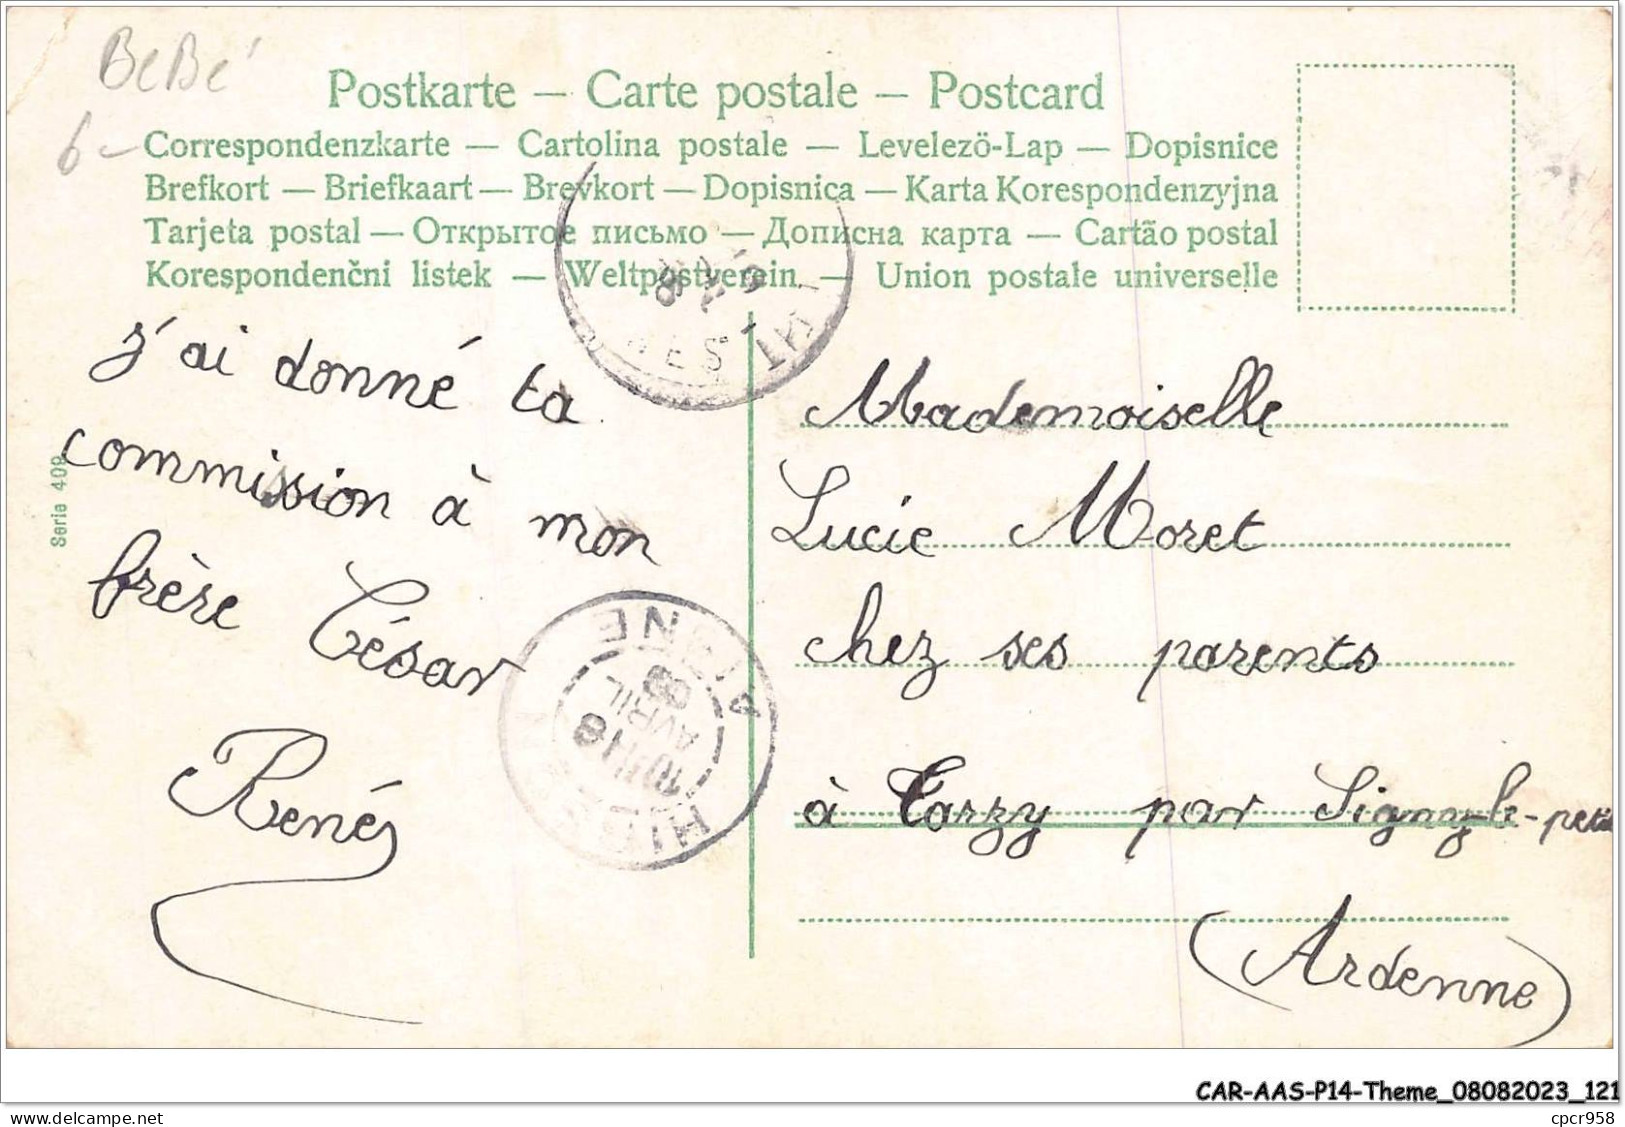 BeBé
6-
Postkarte — Carte postale — Postcard
Correspondenzkarte — Cartolina postale — Levelezö-Lap — Dopisnice
Brefkort — Briefkaart — Brevkort — Dopisnica — Karta Korespondenzyjna
Tarjeta postal — Открытое письмо — Дописна карта — Cartão postal
Korespondenčni listek — Weltpostverein — Union postale universelle
Serie 409
j'ai donné ta
commission à mon
frère César
René
Mademoiselle
Lucie Moret
chez ses parents
à Tarzy par Signy-le-petit
(Ardenne)
HIRSON
AISNE
AVRIL
08
CAR-AAS-P14-Theme_08082023_121
cpcr958